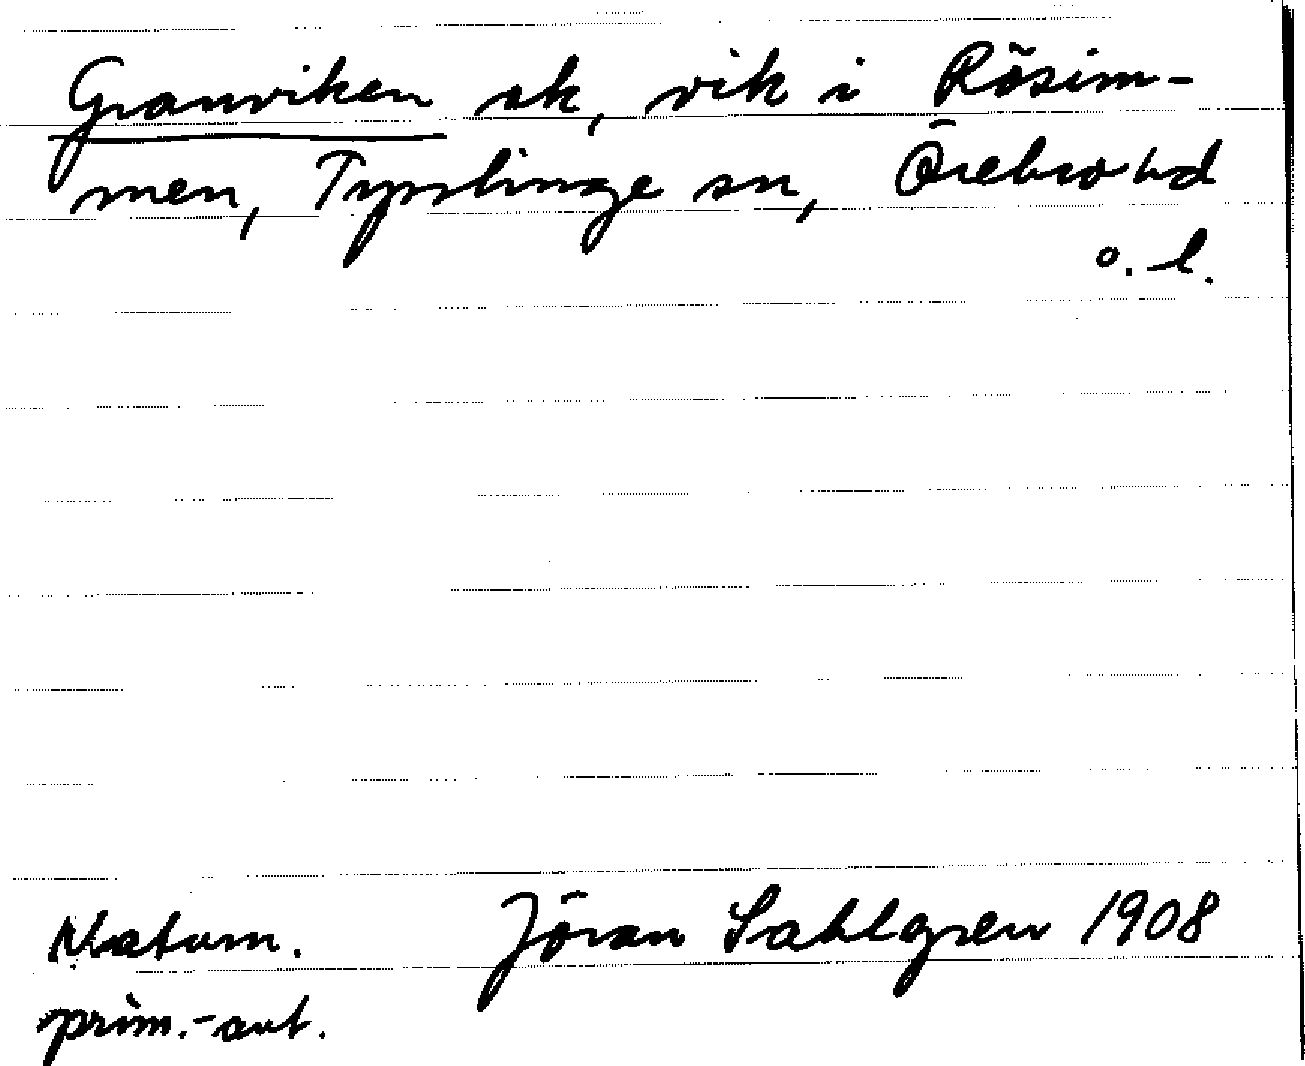 Granviken sk, vik i Rösim-
men, Tysslinge sn, Örebro hd
o. l.
Natorn. Jöran Sahlgren 1908
prim.-ant.